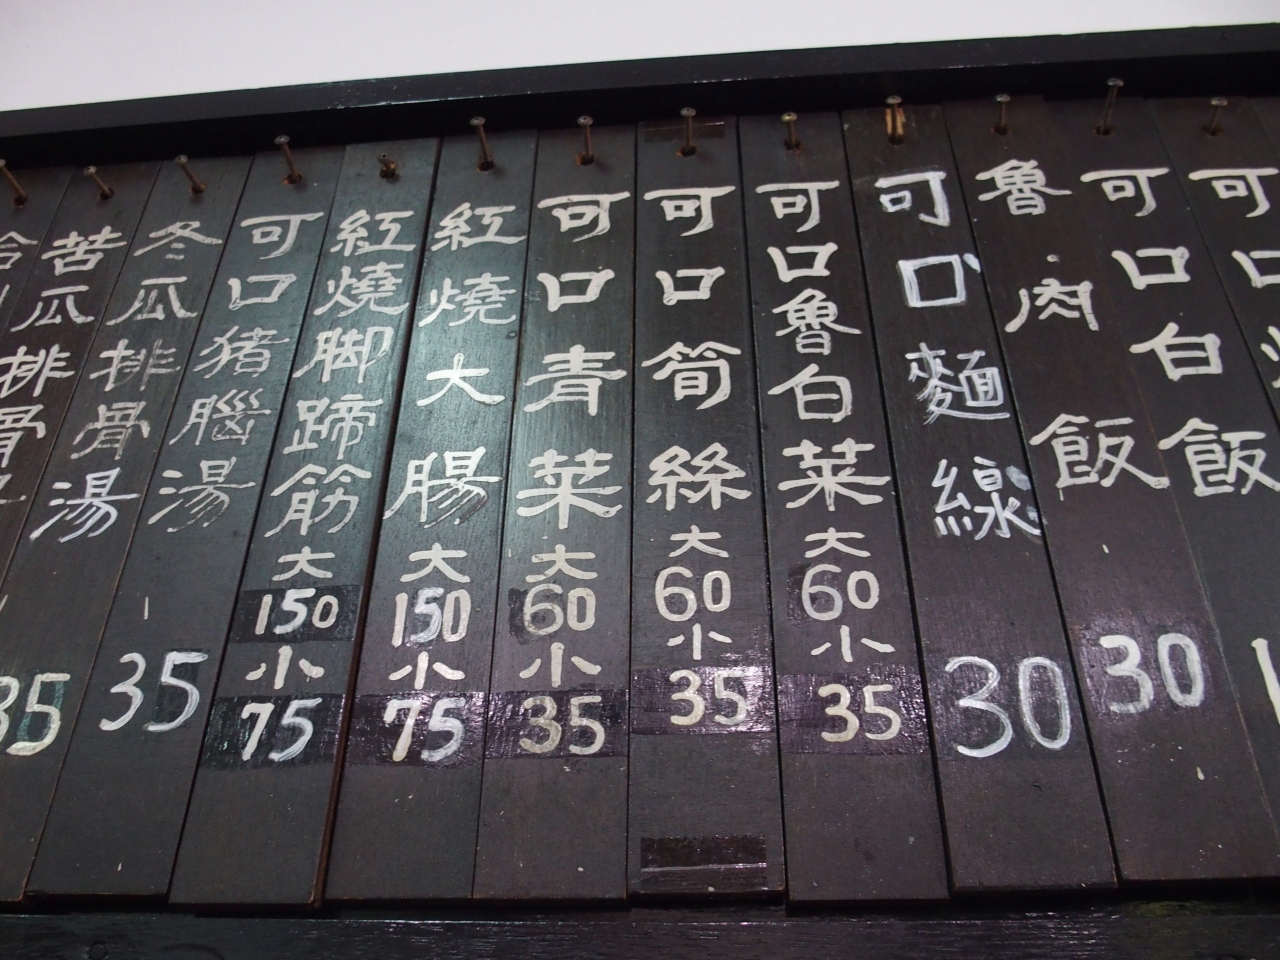 可口
可口白飯
魯肉飯
30
可口麵線
30
可口魯白菜
大
60
小
35
可口筍絲
大
60
小
35
可口青菜
大
60
小
35
紅燒大腸
大
150
小
75
紅燒脚蹄筋
大
150
小
75
可口猪腦湯
35
冬瓜排骨湯
35
苦瓜排骨